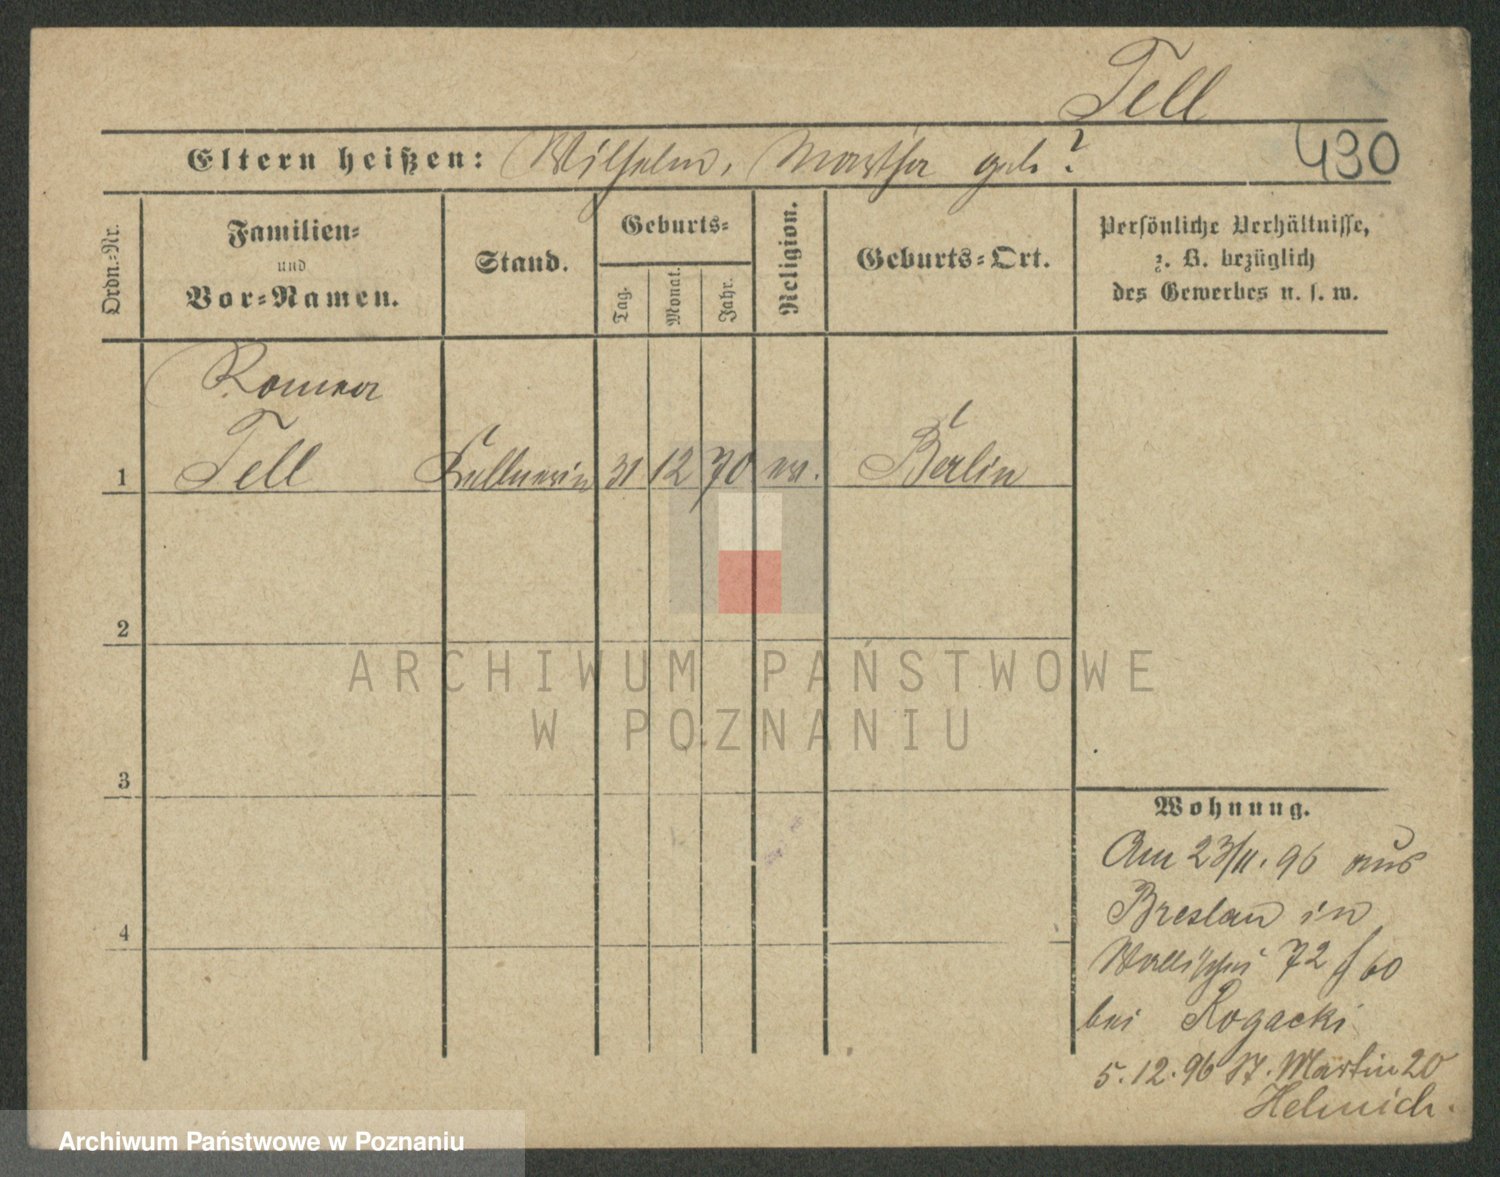 Tell
430
Eltern heißen: Wilhelm, Martha geb. ?
Ordn.-Nr.
Familien-
und
Vor-Namen.
Stand.
Geburts-
Tag.
Monat.
Jahr.
Religion.
Geburts-Ort.
Persönliche Verhältnisse,
z. B. bezüglich
des Gewerbes u. s. w.
1
Tell Kellnerin 31 12 70 ev. Berlin
2
3
4
Wohnung.
Am 23/11. 96 aus
Breslau in
Wallischei 72 60
bei Rogacki
5.12.96 St. Martin 20
Helmich.
ARCHIWUM PAŃSTWOWE
W POZNANIU
Archiwum Państwowe w Poznaniu